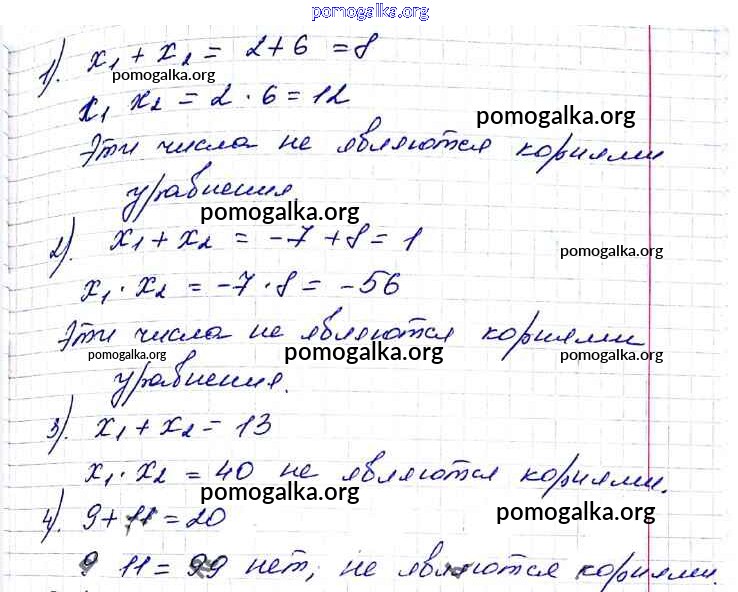 pomogalka.org
1). x₁ + x₂ = 2+6 = 8
pomogalka.org
x₁ x₂ = 2 · 6 = 12
pomogalka.org
Эти числа не являются корнями
уравнения.
pomogalka.org
2). x₁ + x₂ = -7 + 8 = 1
pomogalka.org
x₁ · x₂ = -7 · 8 = -56
Эти числа не являются корнями
pomogalka.org pomogalka.org pomogalka.org
уравнения.
3). x₁ + x₂ = 13
x₁ · x₂ = 40 не являются корнями.
pomogalka.org
4). 9 + 11 = 20
pomogalka.org
9 11 = 99 нет, не являются корнями.